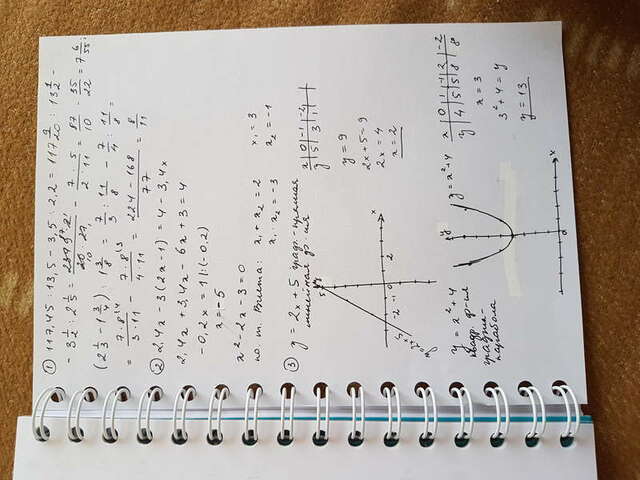 ① 117,45 : 13,5 - 3,5 : 2,2 = 117 9/20 : 13 1/2 -
- 3 1/2 : 2 1/5 = 2349 · 2 / 20 · 27 - 7 · 5 / 2 · 11 = 87/10 - 35/22 = 7 6/55
(2 1/3 - 1 3/4) : 1 3/8 = 7/3 : 11/8 - 7/4 : 11/8 =
= 7 · 8 / 3 · 11 - 7 · 8 / 4 · 11 = 224 - 168 / 77 = 8/11
② 2,4x - 3(2x - 1) = 4 - 3,4x
2,4x + 3,4x - 6x + 3 = 4
-0,2x = 1 |:(-0,2)
x = -5
x² - 2x - 3 = 0
по т. Виета: x₁ + x₂ = 2 x₁ = 3
x₁ · x₂ = -3 x₂ = -1
③ y = 2x + 5 граф.-прямая
линейная ф-ия
x 0 -1 -2
y 5 3 1
y = 9
2x + 5 = 9
2x = 4
x = 2
5 y
-2 -1 0 2 x
y = 2x+5
y = x² + 4
квадр. ф-ия
график-
парабола
y
y = x² + 4
0 x
x 0 1 -1 2 -2
y 4 5 5 8 8
x = 3
3² + 4 = y
y = 13